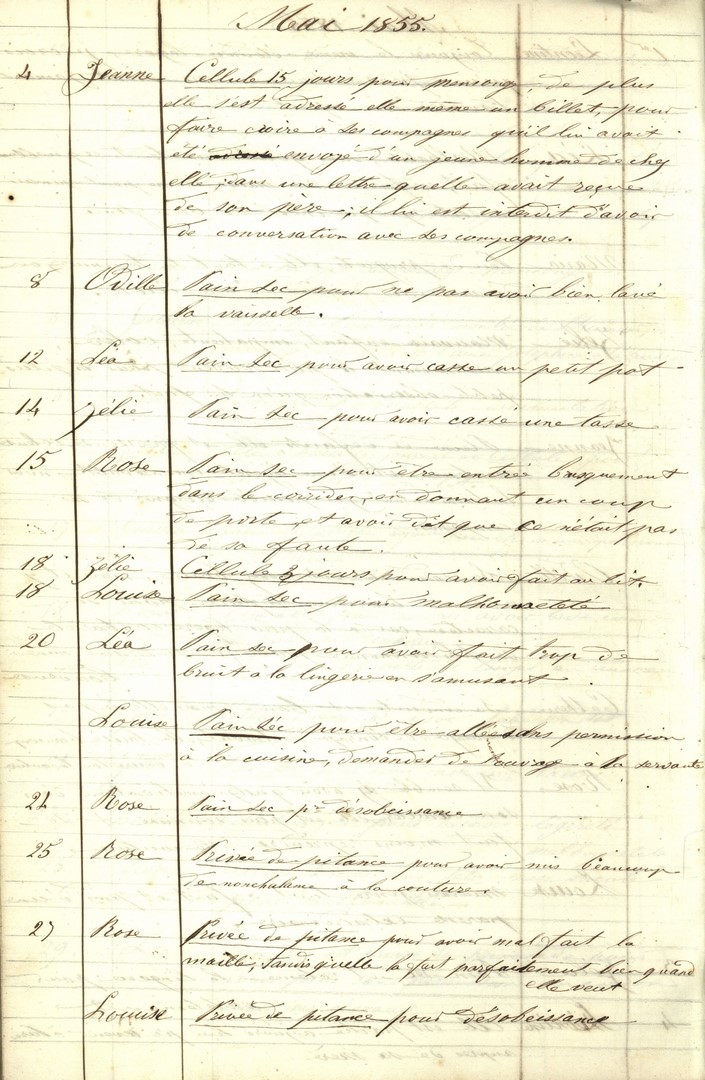 Mai 1855.
4 Jeanne Cellule 15 jours pour mensonge, de plus
elle s'est adressé elle même un billet, pour
faire croire à ses compagnes qu'il lui avait
été adressé envoyé d'un jeune homme de chez
elle, dans une lettre quelle avait reçue
de son père ; il lui est interdit d'avoir
de conversation avec ses compagnes.
8 Odille Pain sec pour ne pas avoir bien lavé
la vaisselle.
12 Léa Pain sec pour avoir casse un petit pot
14 Zélie Pain sec pour avoir cassé une tasse
15 Rose Pain sec pour être entrée brusquement
dans le corridor, en donnant un coup
de porte, et avoir dit que ce n'était pas
de sa faute.
18 Zélie Cellule 3 jours pour avoir fait au lit.
18 Louise Pain sec pour malhonneteté
20 Léa Pain sec pour avoir fait trop de
bruit à la lingerie en s'amusant
Louise Pain sec pour être allée sans permission
à la cuisine, demander de l'ouvrage à la servante
21 Rose Pain sec pr désobeissance
25 Rose Privée de pitance pour avoir mis beaucoup
de nonchalance à la couture.
27 Rose Privée de pitance pour avoir mal fait la
maille, tandis qu'elle la fait parfaitement bien quand
elle veut
Louise Privée de pitance pour désobeissance